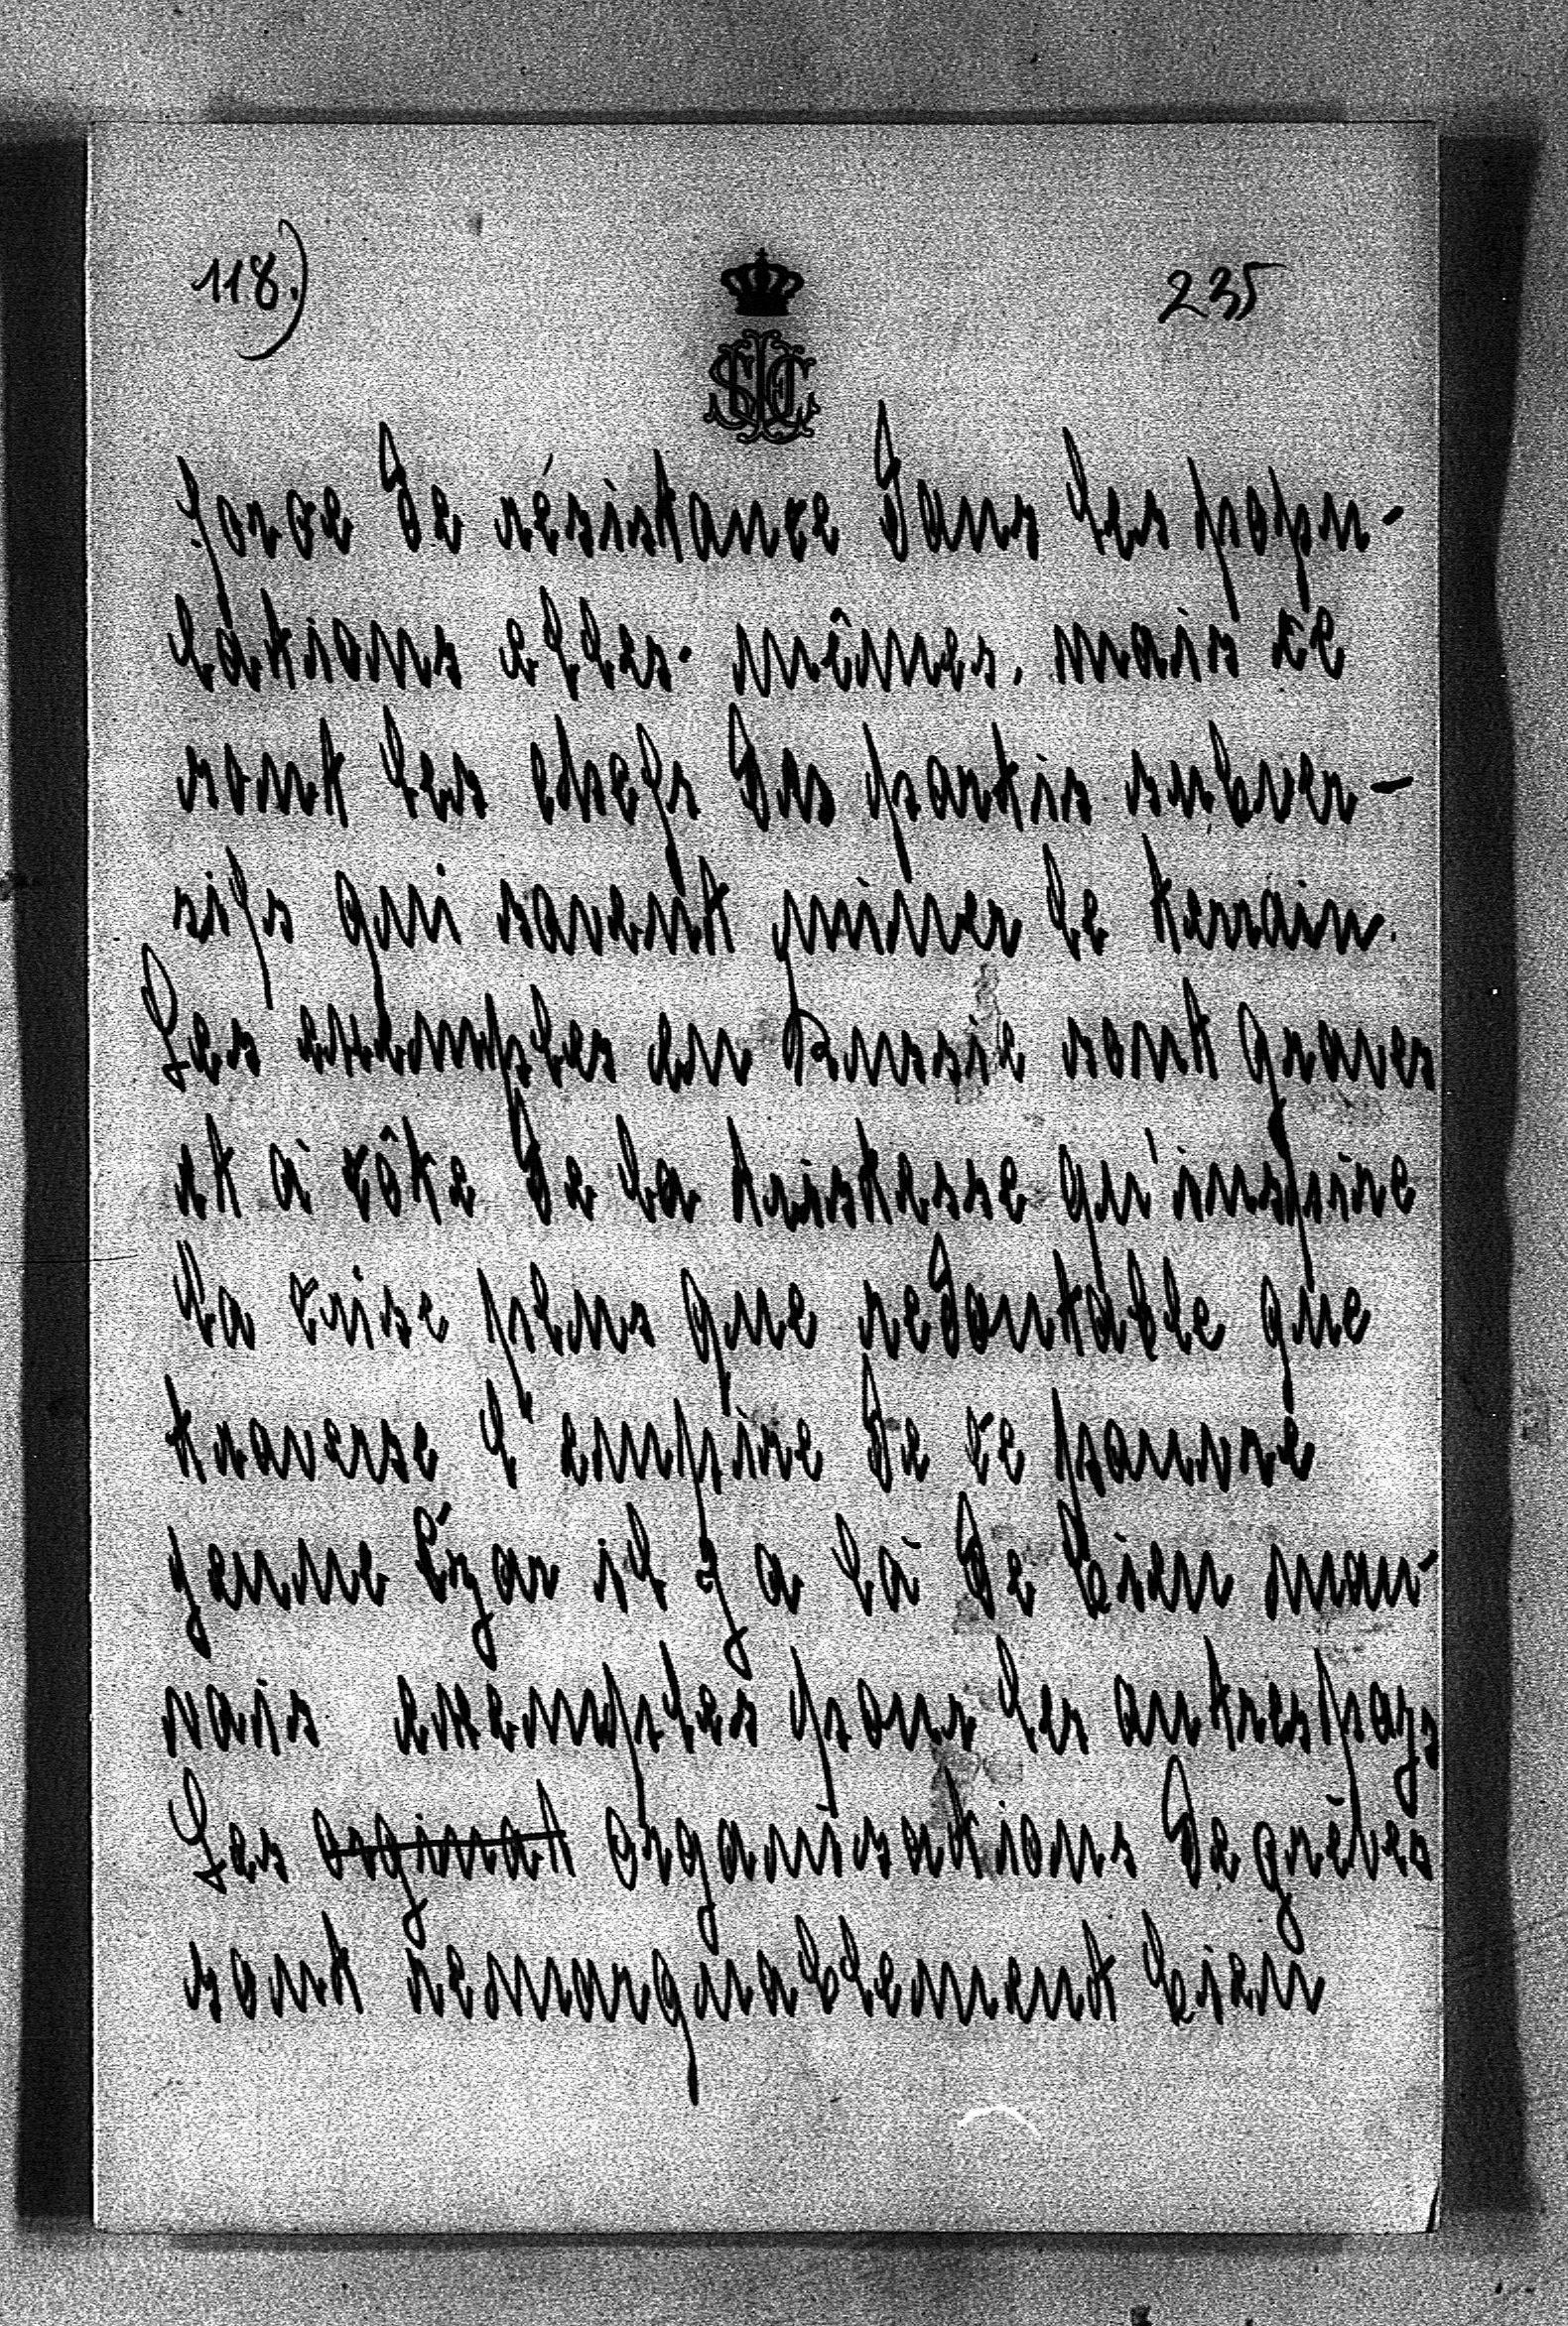 118.) 235
force de résistance dans les popu-
lations elles-mêmes. mais ce
sont les chefs des partis subver-
sifs qui savent miner le terrain.
Les exemples en Russie sont graves
et à côte de la tristesse qu'inspire
la crise plus que redoutable que
traverse l'empire de ce pauvre
jeune Czar il y a là de bien mau-
vais exemples pour les autres pays
Les orginat organisations de grèves
sont remarquablement bien